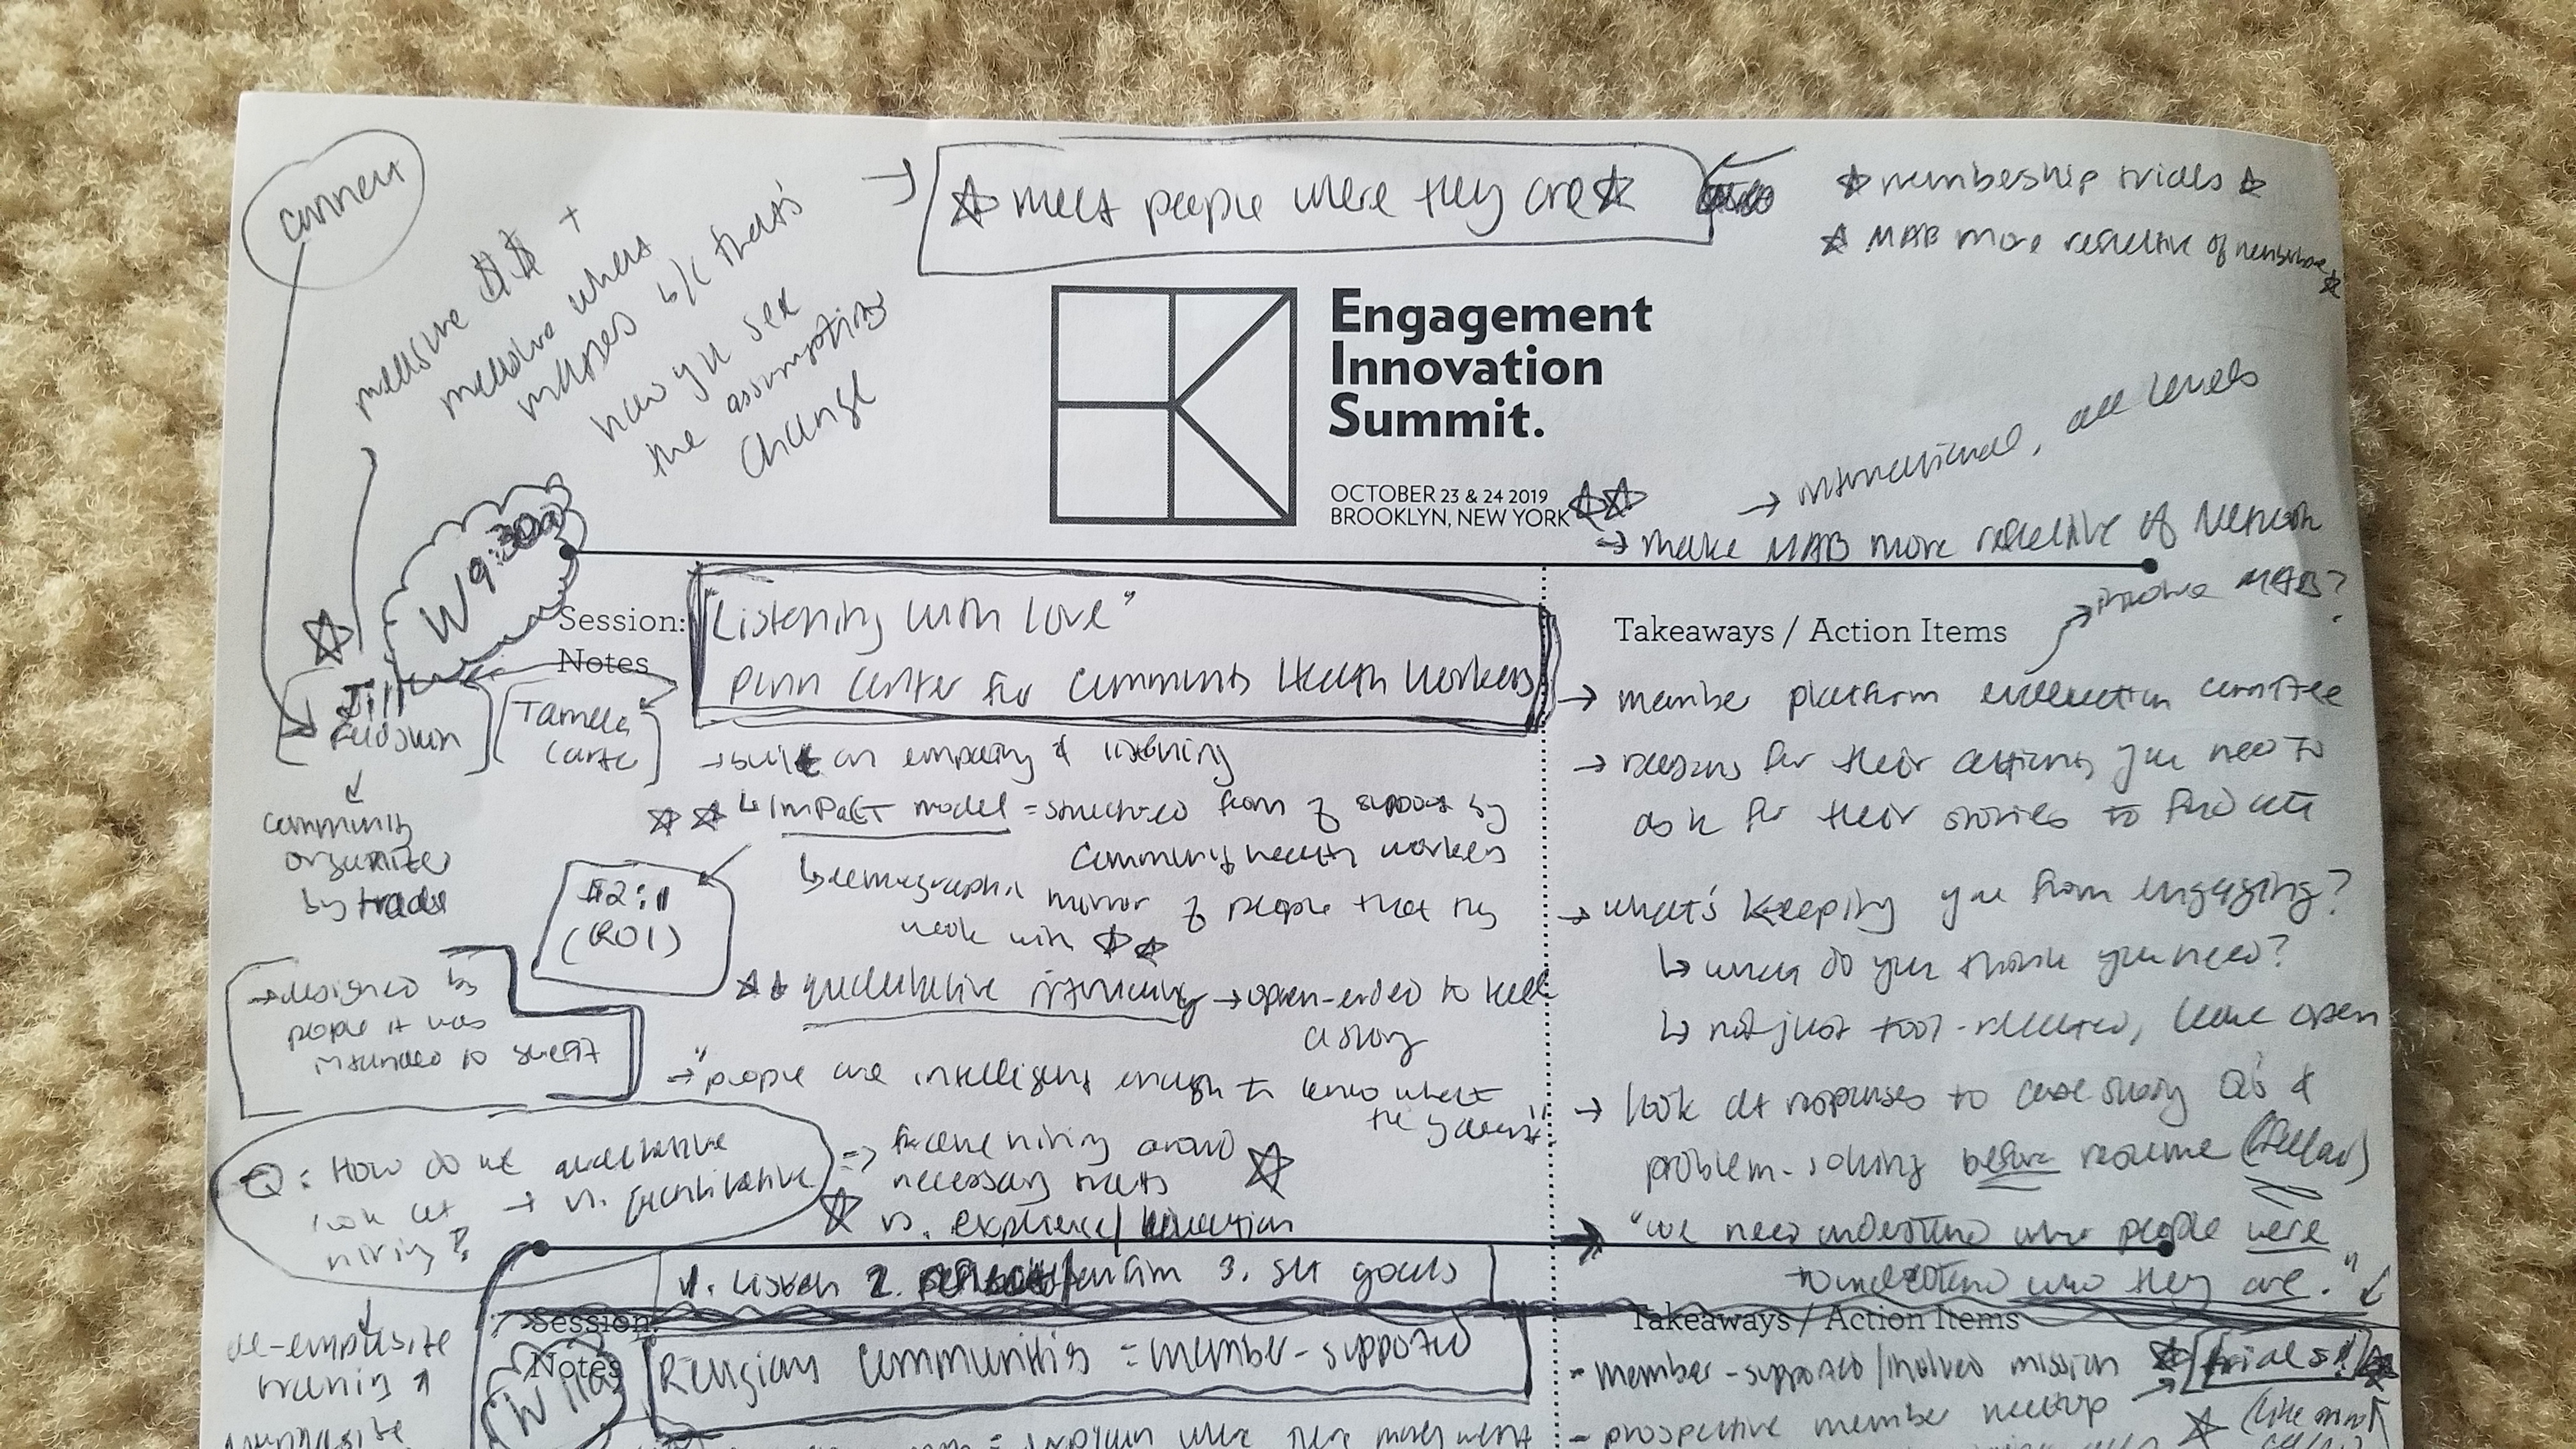 connect
☆ meet people where they are ☆
☆ membership trials ☆
☆ MAB more reflective of membership ☆
measure $$ +
measure what
matters b/c that's
how you see
the assumptions
change
Engagement
Innovation
Summit.
OCTOBER 23 & 24 2019
BROOKLYN, NEW YORK
→ international, all levels
→ make MAB more reflective of Network
involve MAB?
W 9:30a
Session:
Notes
"Listening with Love"
Penn Center for Community Health Workers
Takeaways / Action Items
Jill
Feldman
Tamela
Carter
community
organizer
by trade
→ built on empathy & listening
↳ IMPaCT model = structured form of support by
community health workers
↳ demographic mirror of people that they
work with ☆☆
$2:1
(ROI)
☆☆ qualitative interviewing → open-ended to tell
a story
→ designed by
people it was
intended to benefit
→ "people are intelligent enough to know what
they
Q: How do we
look at → qualitative
vs. quantitative
hiring?
=> frame hiring around
necessary traits
☆ vs. experience/education
☆
1. Listen 2. 3. set goals
→ member platform evaluation committee
→ reasons for their actions, you need to
ask for their stories to find out
→ what's keeping you from engaging?
↳ what do you think you need?
↳ not just tool-related, leave open
→ look at responses to case study Q's &
problem-solving before resume
→ "we need understand who people were
to understand who they are."
de-emphasize
training &
emphasize
Session:
Notes
W 11a
Religious Communities = member-supported
Takeaways / Action Items
- member-supported/involved mission
trials!
- prospective member meetup
(like
= explain where their money went